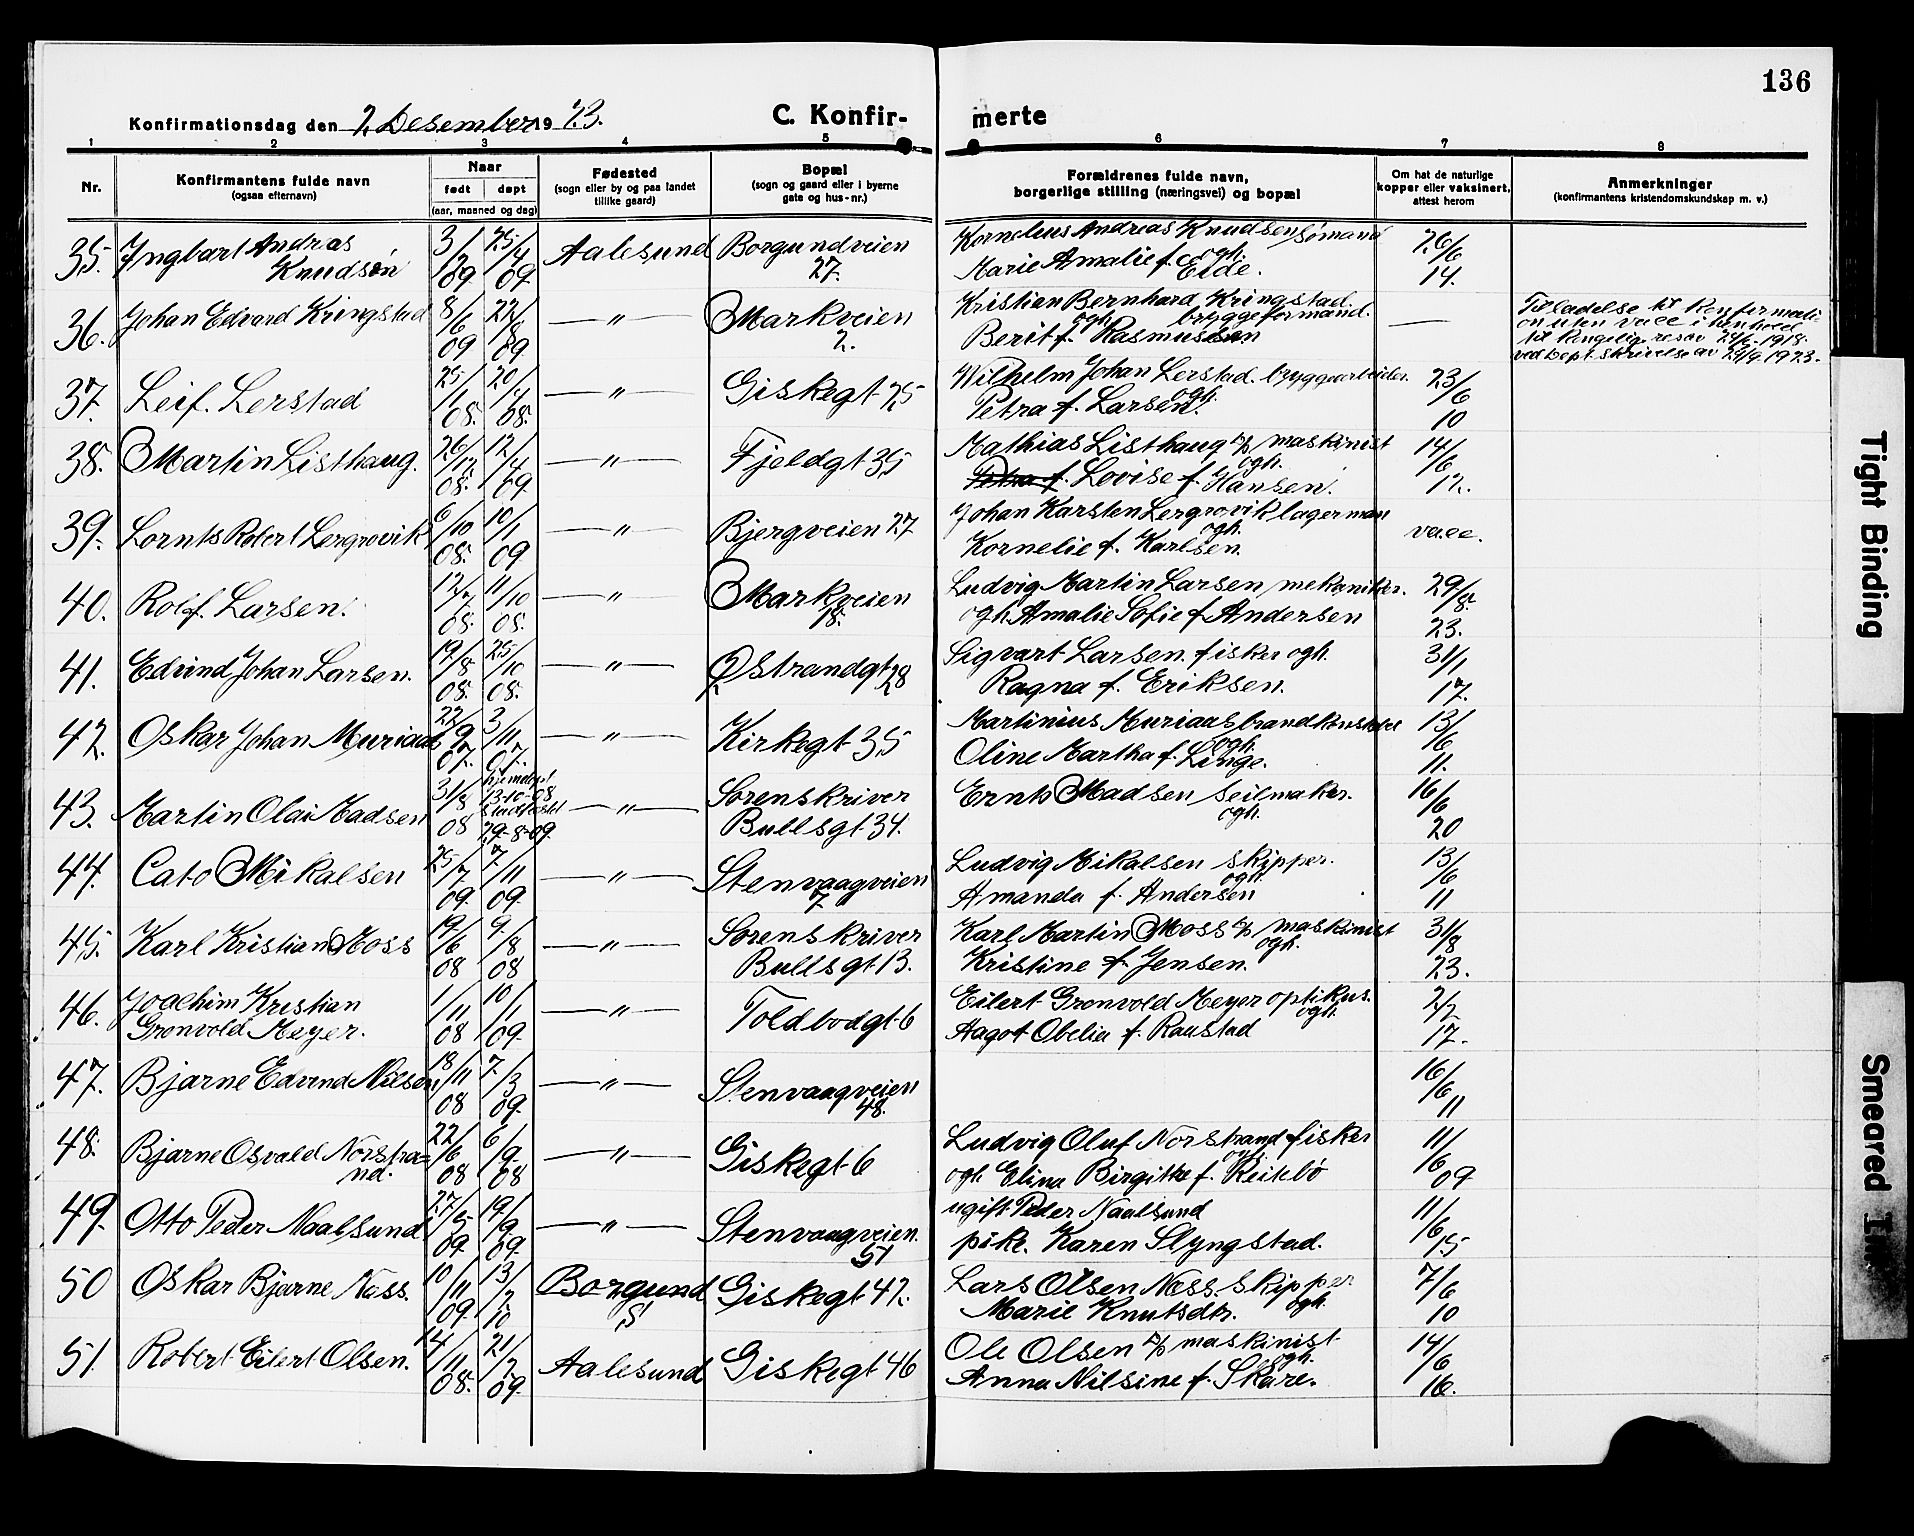 136
Konfirmationsdag den 2. Desember 19 23. C. Konfir- merte
1 2 3 4 5 6 7 8
Nr. Konfirmantens fulde navn (ogsaa efternavn) Naar født døpt (aar, maaned og dag) Fødested (sogn eller by og paa landet tillike gaard) Bopæl (sogn og gaard eller i byerne gate og hus-nr.) Forældrenes fulde navn, borgerlige stilling (næringsvei) og bopæl Om hat de naturlige kopper eller vaksinert, attest herom Anmerkninger (konfirmantens kristendomskundskap m. v.)
35. Ingvart Andras Knudsøn 3/2 09 25/4 09 Aalesund Borgundveien 27. Kornelius Andreas Knudsen sømand ogh. Marie Amalie f. Eide. 26/6 14.
36. Johan Edvard Kringstad 8/6 09 22/8 09 —"— Markveien 2. Kristian Bernhard Kringstad. bryggeformand. ogh. Berit f. Rasmussen — Tilladelse til konfirmati-
on uten vacc i henhold
til kongelig res av 1918.
ved bept. skrivelse av 24/9. 1923.
37. Leif. Lerstad 25/1 08. 20/4 08. —"— Giskegt 25 Wilhelm Johan Lerstad. bryggearbeider. ogh. Petra f. Larsen. 23/6 10
38. Martin Listhaug. 26/12 08. 12/4 09. —"— Fjeldgt 35 Mathias Listhaug d/s maskinist ogh. Petra f. Lovise f. Hansen. 14/6 12.
39. Lornts Robert Lergrovik 6/10 08. 10/1 09. —"— Bjergveien 27 Johan Karsten Lergrovik lagerman ogh. Kornelie f. Karlsen. vacc.
40. Rolf. Larsen. 12/7 08. 11/10 08. —"— Markveien 18. Ludvig Martin Larsen mekaniker. ogh. Amalie Sofie f. Andersen 29/8. 23.
41. Edvind Johan Larsen. 19/8 08. 25/10 08. —"— Østrandgt 28 Sigvart Larsen. fisker ogh. Ragna f. Eriksen. 31/1 17.
42. Oskar Johan Muriaas 22/9 07. 3/11 07. —"— Kirkegt 35 Martinius Muriaas brandkonstabel ogh. Oline Martha f. Linge. 13/6 11.
43. Martin Olai Madsen 31/8 08 hjemdøpt 13-10-08 stadfestet 29-8-09. —"— Sorenskriver Bullsgt 34. Ernts Madsen seilmaker. ogh. 16/6 20
44. Cato Mikalsen 25/7 09. 7/11 09. —"— Stenvaagveien 7. Ludvig Mikalsen skipper. ogh. Amanda f. Andersen 13/6 11
45. Karl Kristian Moss 19/6 08 9/8 08 —"— Sorenskriver Bullsgt 13. Karl Martin Moss d/s maskinist ogh. Kristine f. Jensen. 31/8 23.
46. Joachim Kristian Gronvold Meyer. 1/11 08 10/1 09. —"— Toldbodgt 6 Eilert Gronvold Meyer optikus. ogh. Aagot Obelia f. Raustad 2/2 17.
47. Bjarne Edvind Nilsen 18/11 08 7/3 09. —"— Stenvaagveien 48. 16/6 11
48. Bjarne Osvald Norstra=
nd. 22/6 08 6/9 08 —"— Giskegt 6 Ludvig Oluf Norstrand fisker ogh. ogh Elina Birgitte f. Reitebø 11/6 09
49. Otto Peder Naalsund 27/5 09. 19/9 09. —"— Stenvaagveien. 51 ugift Peder Naalsund pike. Karen Slyngstad. 11/6 15
50 Oskar Bjarne Næss. 10/11 09. 13/2 10 Borgund S Giskegt 42. Lars Olsen Næss. skipper ogh. Marie Knutsdtr. 7/6 10
51. Robert Eilert Olsen. 14/11 08. 21/2 09. Aalesund Giskegt 46 Ole Olsen d/s maskinist ogh. Anna Nilsine f. Skare. 14/6 16.
Tight Binding
Smeared Ink